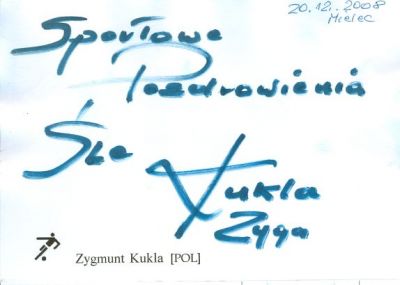 20.12.2008
Mielec
Sportowe
Pozdrowienia
Śle
Kukla
Zyga
Zygmunt Kukla [POL]